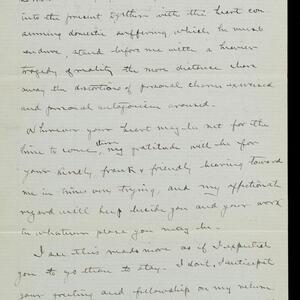 into the present together with the heart con
suming domestic suffering which he must
endure, stand before me with a heavier
tragedy of reality the more distance clears
away the distortions of personal charm exercised
and personal antagonism aroused.
Wherever your heart may be not for the
time to come, then, my gratitude will be for
your kindly, frank & friendly bearing toward
me in times very trying, and my affectional
regard will keep beside you and your work
in whatever place you may be.
I see this reads more as if I expected
you to go than to stay. I don't. I anticipate
your greeting and fellowship on my return